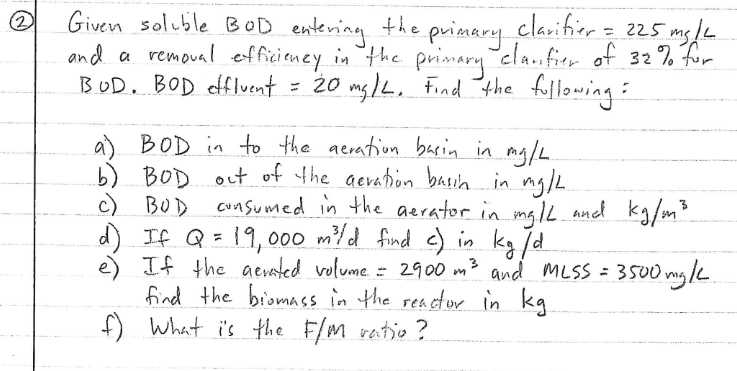 ② Given soluble BOD entering the primary clarifier = 225 mg/L
and a removal efficiency in the primary clarifier of 32% for
BOD. BOD effluent = 20 mg/L. Find the following:
a) BOD in to the aeration basin in mg/L
b) BOD out of the aeration basin in mg/L
c) BOD consumed in the aerator in mg/L and kg/m³
d) If Q = 19,000 m³/d find c) in kg/d
e) If the aerated volume = 2900 m³ and MLSS = 3500 mg/L
find the biomass in the reactor in kg
f) What is the F/M ratio?